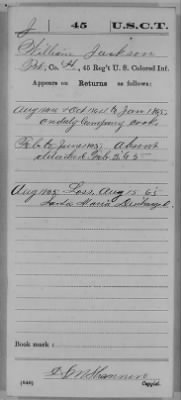 J 45 U.S.C.T.
William Jackson
Pvt, Co. H, 45 Reg't U. S. Colored Inf.
Appears on Returns as follows:
Aug 1864 & Oct 1864 to Jan 1865
on daily Company cook
Feb to June 1865 Absent
detached Feb 865
Aug 1865 Loss, Aug 15 65
Maria
Book mark:
Copyist.